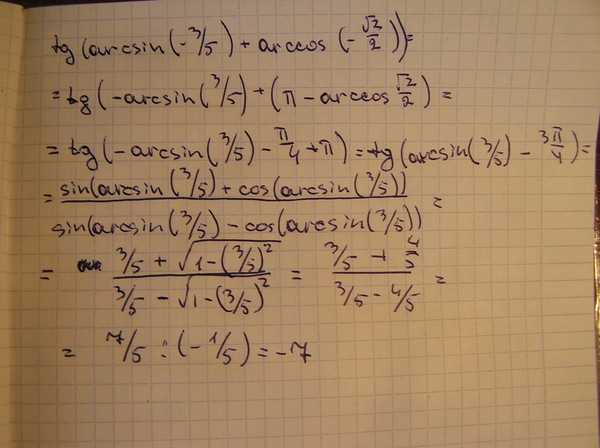 tg(arcsin(-3/5) + arccos(-√2/2)) =
= tg(-arcsin(3/5) + (π - arccos √2/2) =
= tg(-arcsin(3/5) - π/4 + π) = -tg(arcsin(3/5) - 3π/4) =
= sin(arcsin(3/5) + cos(arcsin(3/5)) / sin(arcsin(3/5) - cos(arcsin(3/5)) =
= 3/5 + √1-(3/5)² / 3/5 - √1-(3/5)² = 3/5 + 4/5 / 3/5 - 4/5 =
= 7/5 : (-1/5) = -7